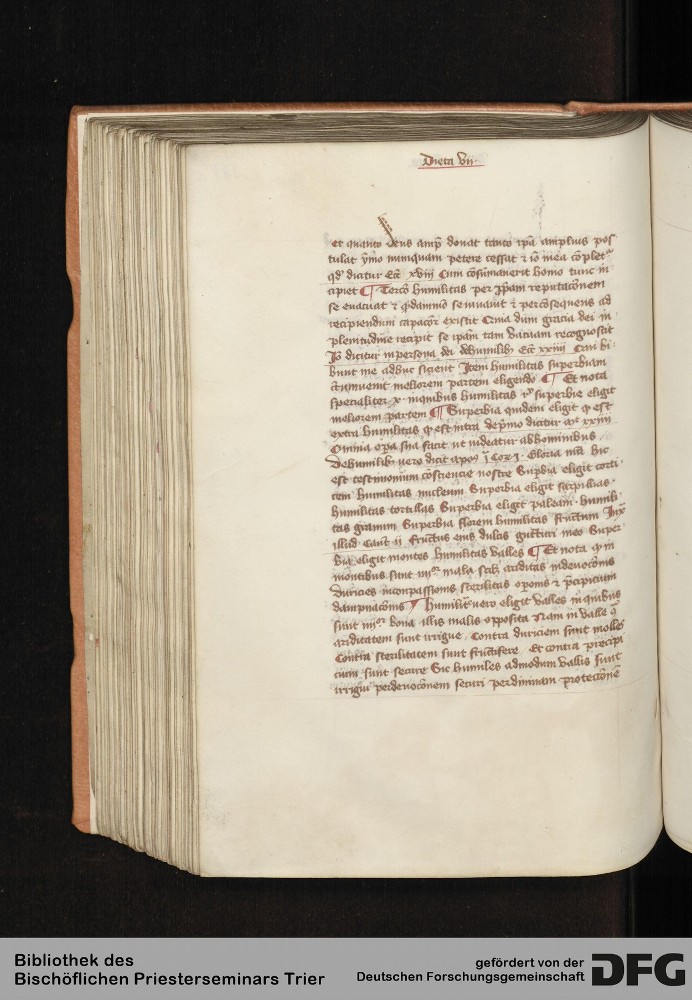 Dieta vii
et quanto deus amp̄ donat tanto ip̄a amplius pos
tulat ymo numquam petere cessat et iō in ea cōplet᷑
qd̓ dicitur Ecc̄ xviij Cum cōsūmauerit homo tunc in
cipiet ¶ Tercō humilitas per ip̄am reputacōnem
se euacuat et se et percōsequens ad
recipiendum capacior existit Omnia dum gracia dei in
plenitudine recipit se ip̄am tam vacuam recognoscit
Jō dicitur in persona dei de humilib; Ecc̄ xxiiij Qui bi
bunt me adhuc sicient Item humilitas superbiam
meliorem partem eligendo ¶ Et nota
specialiter x in quibus humilitas et superbie eligit
meliorem partem ¶ Superbia quidem eligit quod est
extra humilitas quod est intra de p̄mo dicitur mt xxiii
Omnia opera sua faciūt ut videātur ab hominibus
De humilib; uero dicit apos̄ ij Cor j. Gloria nrā hec
est testimonium cōsciencie nostre Suꝑbia eligit corti
cem humilitas nucleum Superbia eligit
humilitas tortellas Superbia eligit paleam humili
tas granum Superbia florem humilitas fructum Jux̄
illud Canť ii Fructus eius dulcis gutturi meo Super
bia eligit montes humilitas valles ¶ Et nota qd̓ in
montibus sunt iiijor mala scilicet ariditas indeuocōnis
duricies incompassionis sterilitas oper̄onis et p̄cipicium
dampnacōnis ¶ Humilitas uero eligit valles in quibus
sunt iiijor bona illis malis opposita Nam in valle contra
ariditatem sunt irrigue Contra duriciem sunt molles
Contra sterilitatem sunt fructifere Et contra precipi
cium sunt secure Sic humiles ad modum vallis sunt
irrigui per deuocōnem securi per diuinam protectionē
Bibliothek des
Bischöflichen Priesterseminars Trier
gefördert von der
Deutschen Forschungsgemeinschaft
DFG